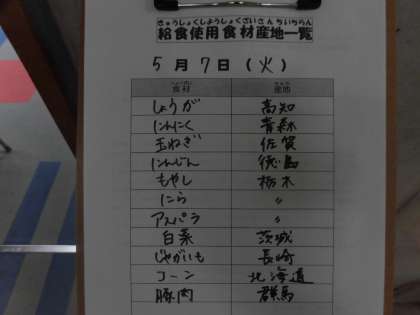 きゅうしょくしようしょくざいさんちいちらん
給食使用食材産地一覧
5月7日(火)
食材 産地
しょうが 高知
にんにく 青森
玉ねぎ 佐賀
にんじん 徳島
もやし 栃木
にら 〃
アスパラ 〃
白菜 茨城
じゃがいも 長崎
コーン 北海道
豚肉 群馬